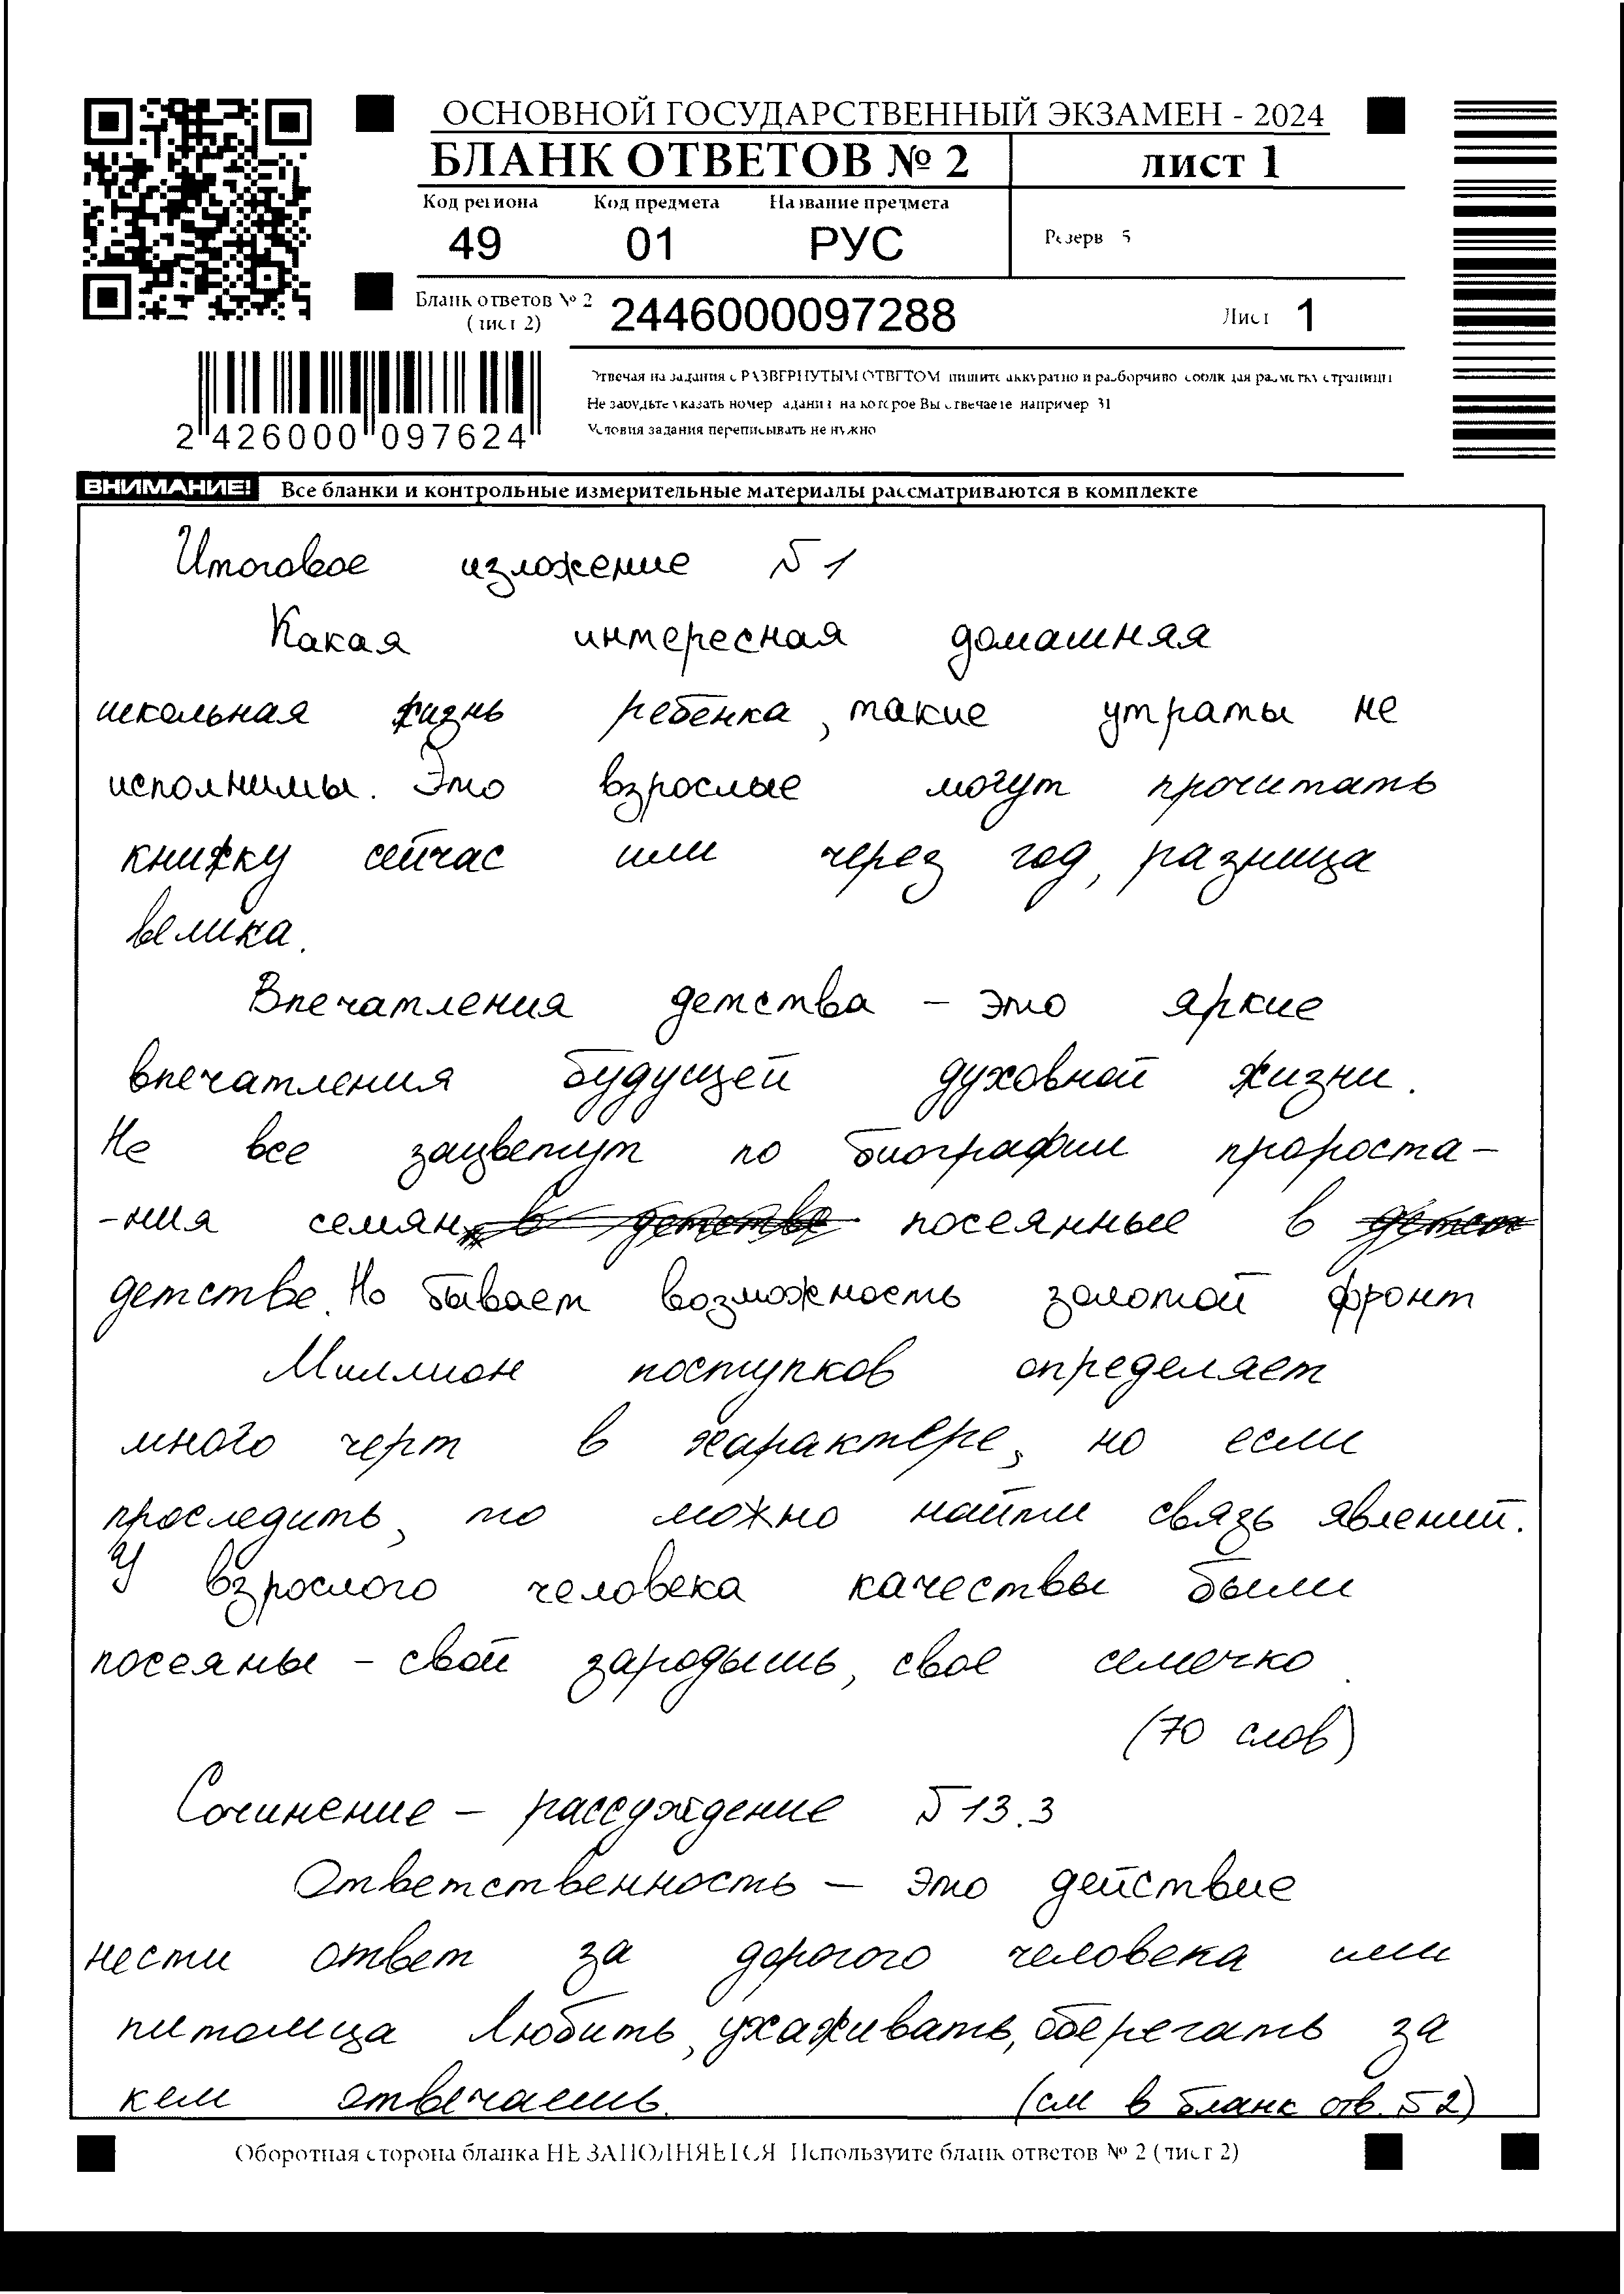 ОСНОВНОЙ ГОСУДАРСТВЕННЫЙ ЭКЗАМЕН - 2024
БЛАНК ОТВЕТОВ № 2
ЛИСТ 1
Код региона Код предмета Название предмета
49 01 РУС
Резерв 5
Бланк ответов № 2
(лист 2)
2446000097288
Лист 1
2 426000 097624
Отвечая на задания с РАЗВЕРНУТЫМ ОТВЕТОМ пишите аккуратно и разборчиво соблюдая разметку страницы
Не забудьте указать номер задания на которое Вы отвечаете например 31
Условия задания переписывать не нужно
ВНИМАНИЕ! Все бланки и контрольные измерительные материалы рассматриваются в комплекте
Итоговое изложение №1
Какая интересная домашняя
школьная жизнь ребенка, такие утраты не
исполнимы. Это взрослые могут прочитать
книжку сейчас или через год, разница
велика.
Впечатления детства – это яркие
впечатления будущей духовной жизни.
Не все зацветут по биографии пророста-
-ния семян посеянные в
детстве. Но бывает возможность золотой фронт
Миллион поступков определяет
много черт в характере, но если
проследить, то можно найти связь явлений.
У взрослого человека качествы были
посеяны – свой зародышь, свое семечко.
(70 слов)
Сочинение – рассуждение №13.3
Ответственность – это действие
нести ответ за дорогого человека или
питомица Любить, ухаживать, оберегать за
кем отвечаешь.
(см в бланк отв. №2)
Оборотная сторона бланка НЕ ЗАПОЛНЯЕТСЯ Используйте бланк ответов № 2 (лист 2)